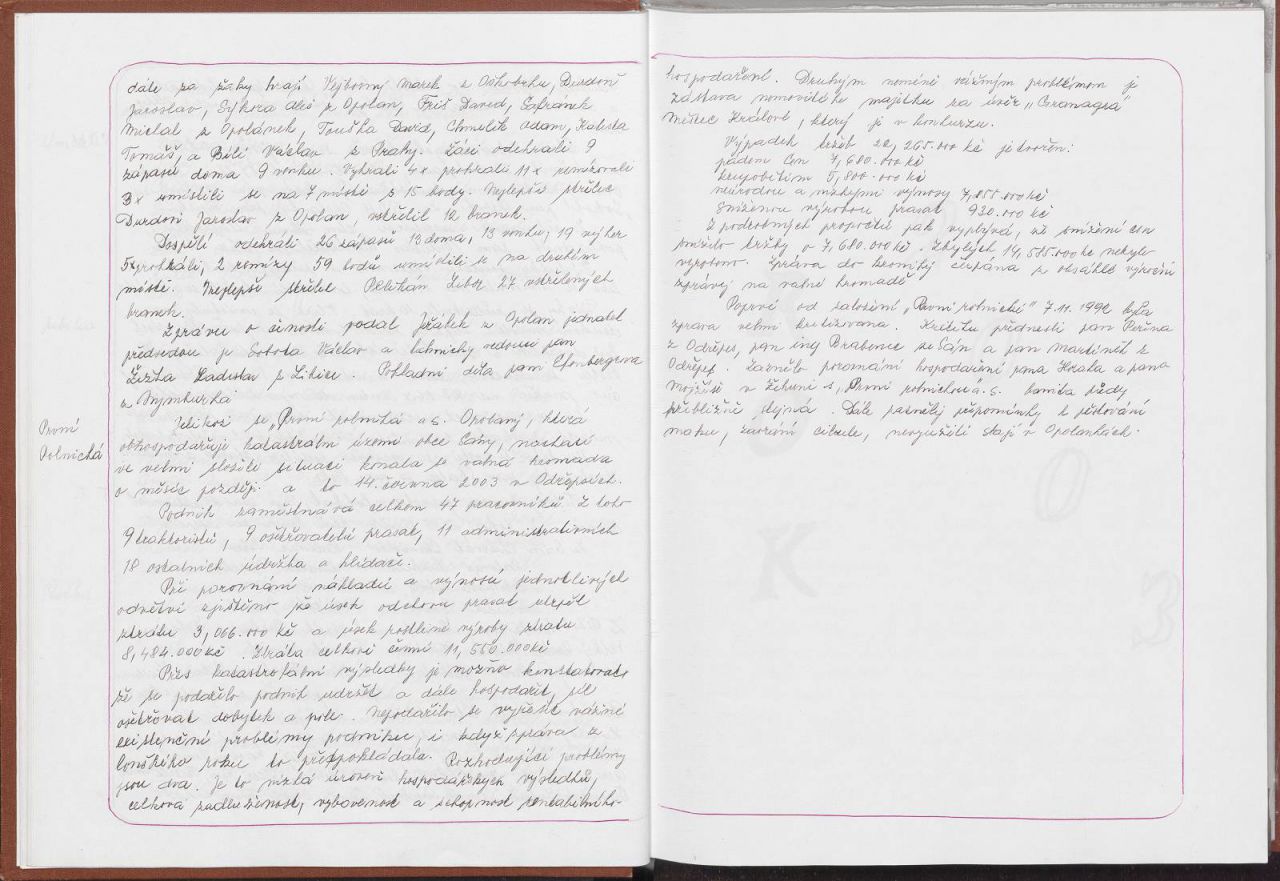 dále za žáky hrají Vejborný Marek z Oškobrhu, Durdoň
Jaroslav, Sýkora Aleš z Opolan, Friš David, Šafránek
Michal z Opolánek, Touška David, Chmelík Adam, Kalista
Tomáš, a Bílí Václav z Prahy. Žáci odehráli 9
zápasů doma 9 venku. Vyhráli 4x prohráli 11x remizovali
3x umístili se na 7 místě s 15 body. Nejlepší střelec
Durdoň Jaroslav z Opolan, vstřelil 12 branek.
Dospělí odehráli 26 zápasů 13 doma, 13 venku, 19 výher
5x prohráli, 2 remízy 59 bodů umístili se na druhém
místě. Nejlepší střelec Libor 27 vstřelených
branek.
Zprávu o činosti podal Jiřálek z Opolan jednatel
předsedou je Sobota Václav a technický vedoucí pan
Žižka Ladislav z Libice. Pokladní dělá paní Efenbergrova
z Nymburka
Jelikož se „První polnická a.s. Opolany, která
První
obhospodařuje katastrální území obce Sány, nachází
Polnická
ve velmi složité situaci konala se valná hromada
o měsíc později. a to 14. června 2003 v Odřepsích.
Podnik zaměstnává celkem 47 pracovníků. Z toho
9 traktoristů, 9 ošetřovatelů prasat, 11 administrativních
18 ostatních údržba a hlídači.
Při porovnání nákladů a výnosů jednotlivých
odvětví zjištěno že úsek odchovu prasat utrpěl
ztrátu 3,066.000 Kč a úsek rostlinné výroby ztrátu
8,484.000 Kč. Ztráta celkově činní 11,550.000 Kč
Přes katastrofální výsledky je možno konstatovat
že se podařilo podnik udržet a dále hospodařit, sít
ošetřovat dobytek a pole. Nepodařilo se vyřešit vážné
existenční problémy podniku, i když zpráva z
lonského roku to předpokládala. Rozhodující problémy
jsou dva. Je to nízká úroveň hospodářských výsledků,
celková zadluženost, vybavenost a schopnost rentabilního
hospodaření. Druhým neméně vážným problémem je
zástava nemovitého majetku za úvěr „Granagra"
Městec Králové, který je v konkurzu.
Výpadek tržeb 22,265.000 Kč je tvořen:
pádem cen 7,680.000 Kč
krupobitím 5,800.000 Kč
neúrodou a nízkými výnosy 7,855.000 Kč
sníženou výrobou prasat 930.000 Kč
Z podrobných propočtů pak vyplývá, že snížení cen
snížilo tržby o 7,680.000 Kč. Zbylých 14,585.000 Kč nebylo
vyrobeno. Zpráva do kroniky čerpána z obsáhlé výroční
zprávy na valné hromadě
Poprvé od založení „První rolnické" 7.11.1992 byla
zpráva velmi kritizována. Kritiku přednesli pan Peřina
z Odřepes, pan ing Brabenec ze Sán a pan Martínek z
Odřeps. Zaznělo porovnání hospodaření pana Horáka a pana
v Žehuni s „První rolnickou a.s. bonita půdy
přibližně stejná. Dále zazněly připomínky k pěstování
máku, zaorání cibule, nevyužití stájí v Opolankách.